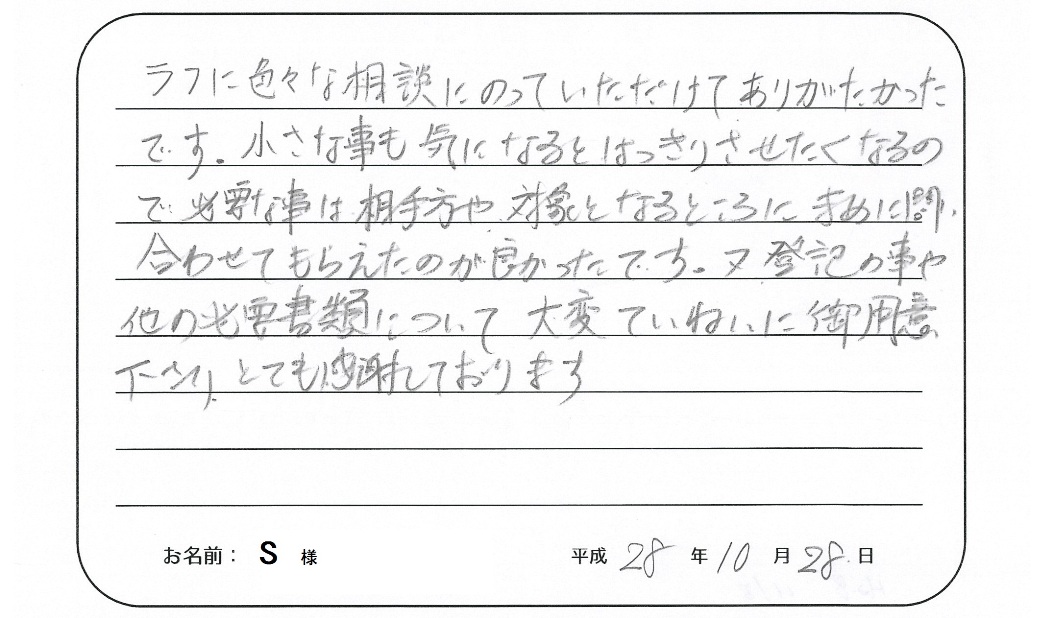 ラフに色々な相談にのっていただけてありがたかった
です。小さな事も気になるとはっきりさせたくなるの
で必要な事は相手方や対象となるところにまめに問い
合わせてもらえたのが良かったです。又登記の事や
他の必要書類について大変ていねいに御用意
下さりとても感謝しております
お名前： S 様
平成 28 年 10 月 28 日